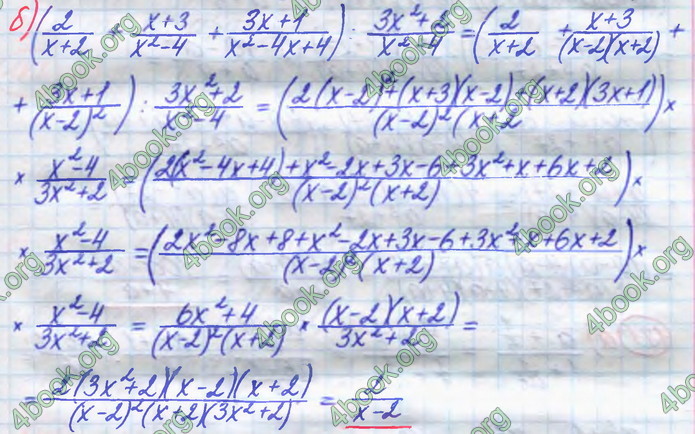 б) (2/(x+2) + (x+3)/(x²-4) + (3x+1)/(x²-4x+4)) : (3x²+2)/(x²-4) = (2/(x+2) + (x+3)/((x-2)(x+2)) +
+ (3x+1)/(x-2)²) : (3x²+2)/(x²-4) = ((2(x-2)²+(x+3)(x-2)+(x+2)(3x+1))/((x-2)²(x+2)) ×
× (x²-4)/(3x²+2) = ((2(x²-4x+4)+x²-2x+3x-6+3x²+x+6x+2)/((x-2)²(x+2))) ×
× (x²-4)/(3x²+2) = ((2x²-8x+8+x²-2x+3x-6+3x²+x+6x+2)/((x-2)²(x+2))) ×
× (x²-4)/(3x²+2) = (6x²+4)/((x-2)²(x+2)) × ((x-2)(x+2))/(3x²+2) =
= (2(3x²+2)(x-2)(x+2))/((x-2)²(x+2)(3x²+2)) = 2/(x-2)
4book.org